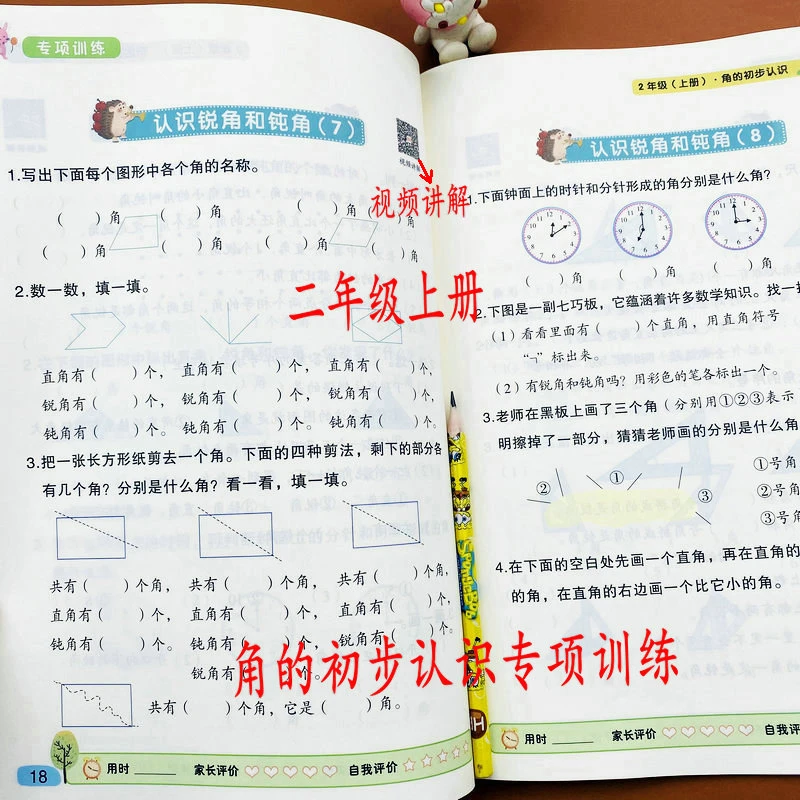 专项训练
认识锐角和钝角（7）
视频讲解
1.写出下面每个图形中各个角的名称。
（ ）角 （ ）角 （ ）角 （ ）角
（ ）角 （ ）角 （ ）角 （ ）角
2.数一数，填一填。
直角有（ ）个， 直角有（ ）个， 直角有（ ）个，
锐角有（ ）个， 锐角有（ ）个， 锐角有（ ）个，
钝角有（ ）个。 钝角有（ ）个。 钝角有（ ）个。
3.把一张长方形纸剪去一个角。下面的四种剪法，剩下的部分各
有几个角？分别是什么角？看一看，填一填。
共有（ ）个角， 共有（ ）个角， 共有（ ）个角，
直角有（ ）个， 直角有（ ）个， 直角有（ ）个，
钝角有（ ）个。 钝角有（ ）个， 锐角有（ ）个。
锐角有（ ）个。
共有（ ）个角，它是（ ）角。
用时 家长评价 自我评价
18
视频讲解
二年级上册
角的初步认识专项训练
2年级（上册）·角的初步认识
认识锐角和钝角（8）
1.下面钟面上的时针和分针形成的角分别是什么角？
（ ）角 （ ）角 （ ）角
2.下图是一副七巧板，它蕴涵着许多数学知识。找一
（1）看看里面有（ ）个直角，用直角符号
“¬”标出来。
（2）有锐角和钝角吗？用彩色的笔各标出一个。
3.老师在黑板上画了三个角（分别用①②③表示
明擦掉了一部分，猜猜老师画的分别是什么角
② ① ③
①号角
②号角
③号角
4.在下面的空白处先画一个直角，再在直角的
的角，在直角的右边画一个比它小的角。
用时 家长评价 自我评